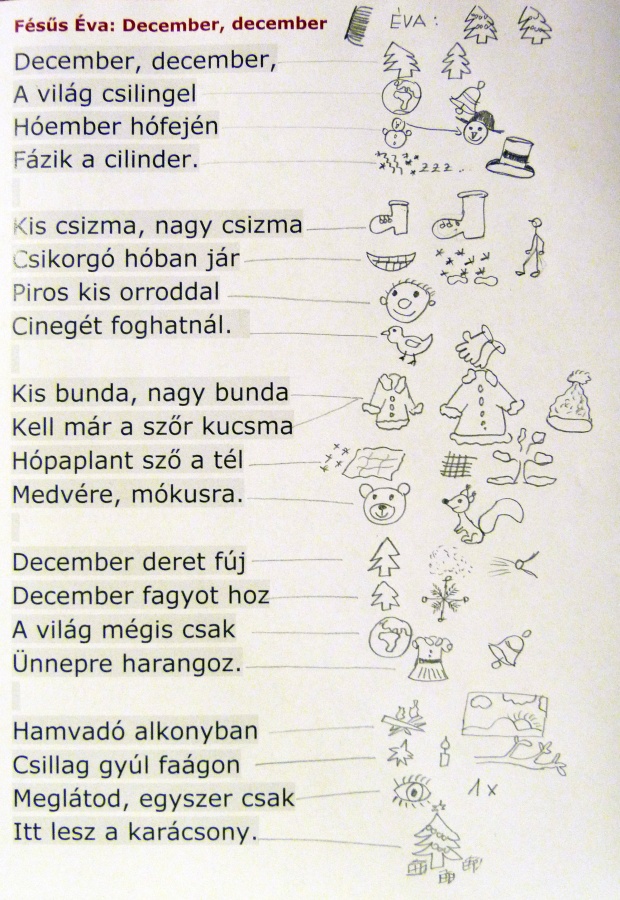 Fésűs Éva: December, december
ÉVA:
December, december,
A világ csilingel
Hóember hófején
Fázik a cilinder.
zzz..
Kis csizma, nagy csizma
Csikorgó hóban jár
Piros kis orroddal
Cinegét foghatnál.
Kis bunda, nagy bunda
Kell már a szőr kucsma
Hópaplant sző a tél
Medvére, mókusra.
December deret fúj
December fagyot hoz
A világ mégis csak
Ünnepre harangoz.
Hamvadó alkonyban
Csillag gyúl faágon
Meglátod, egyszer csak
1x
Itt lesz a karácsony.